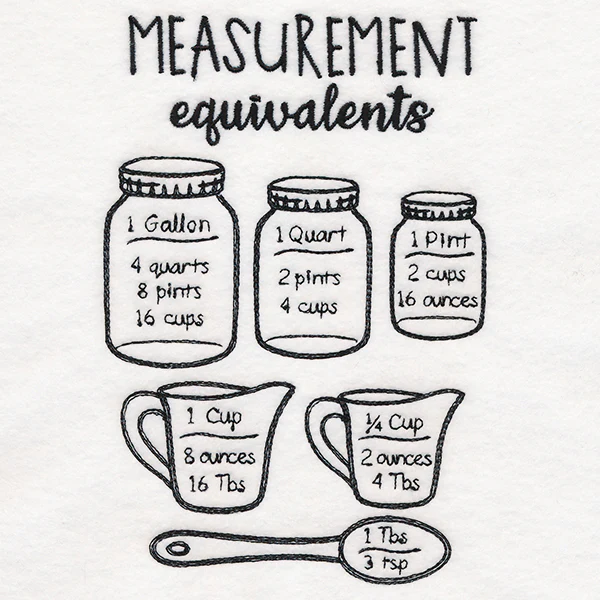 MEASUREMENT
equivalents
1 Gallon
4 quarts
8 pints
16 cups
1 Quart
2 pints
4 cups
1 Pint
2 cups
16 ounces
1 Cup
8 ounces
16 Tbs
1/4 Cup
2 ounces
4 Tbs
1 Tbs
3 tsp